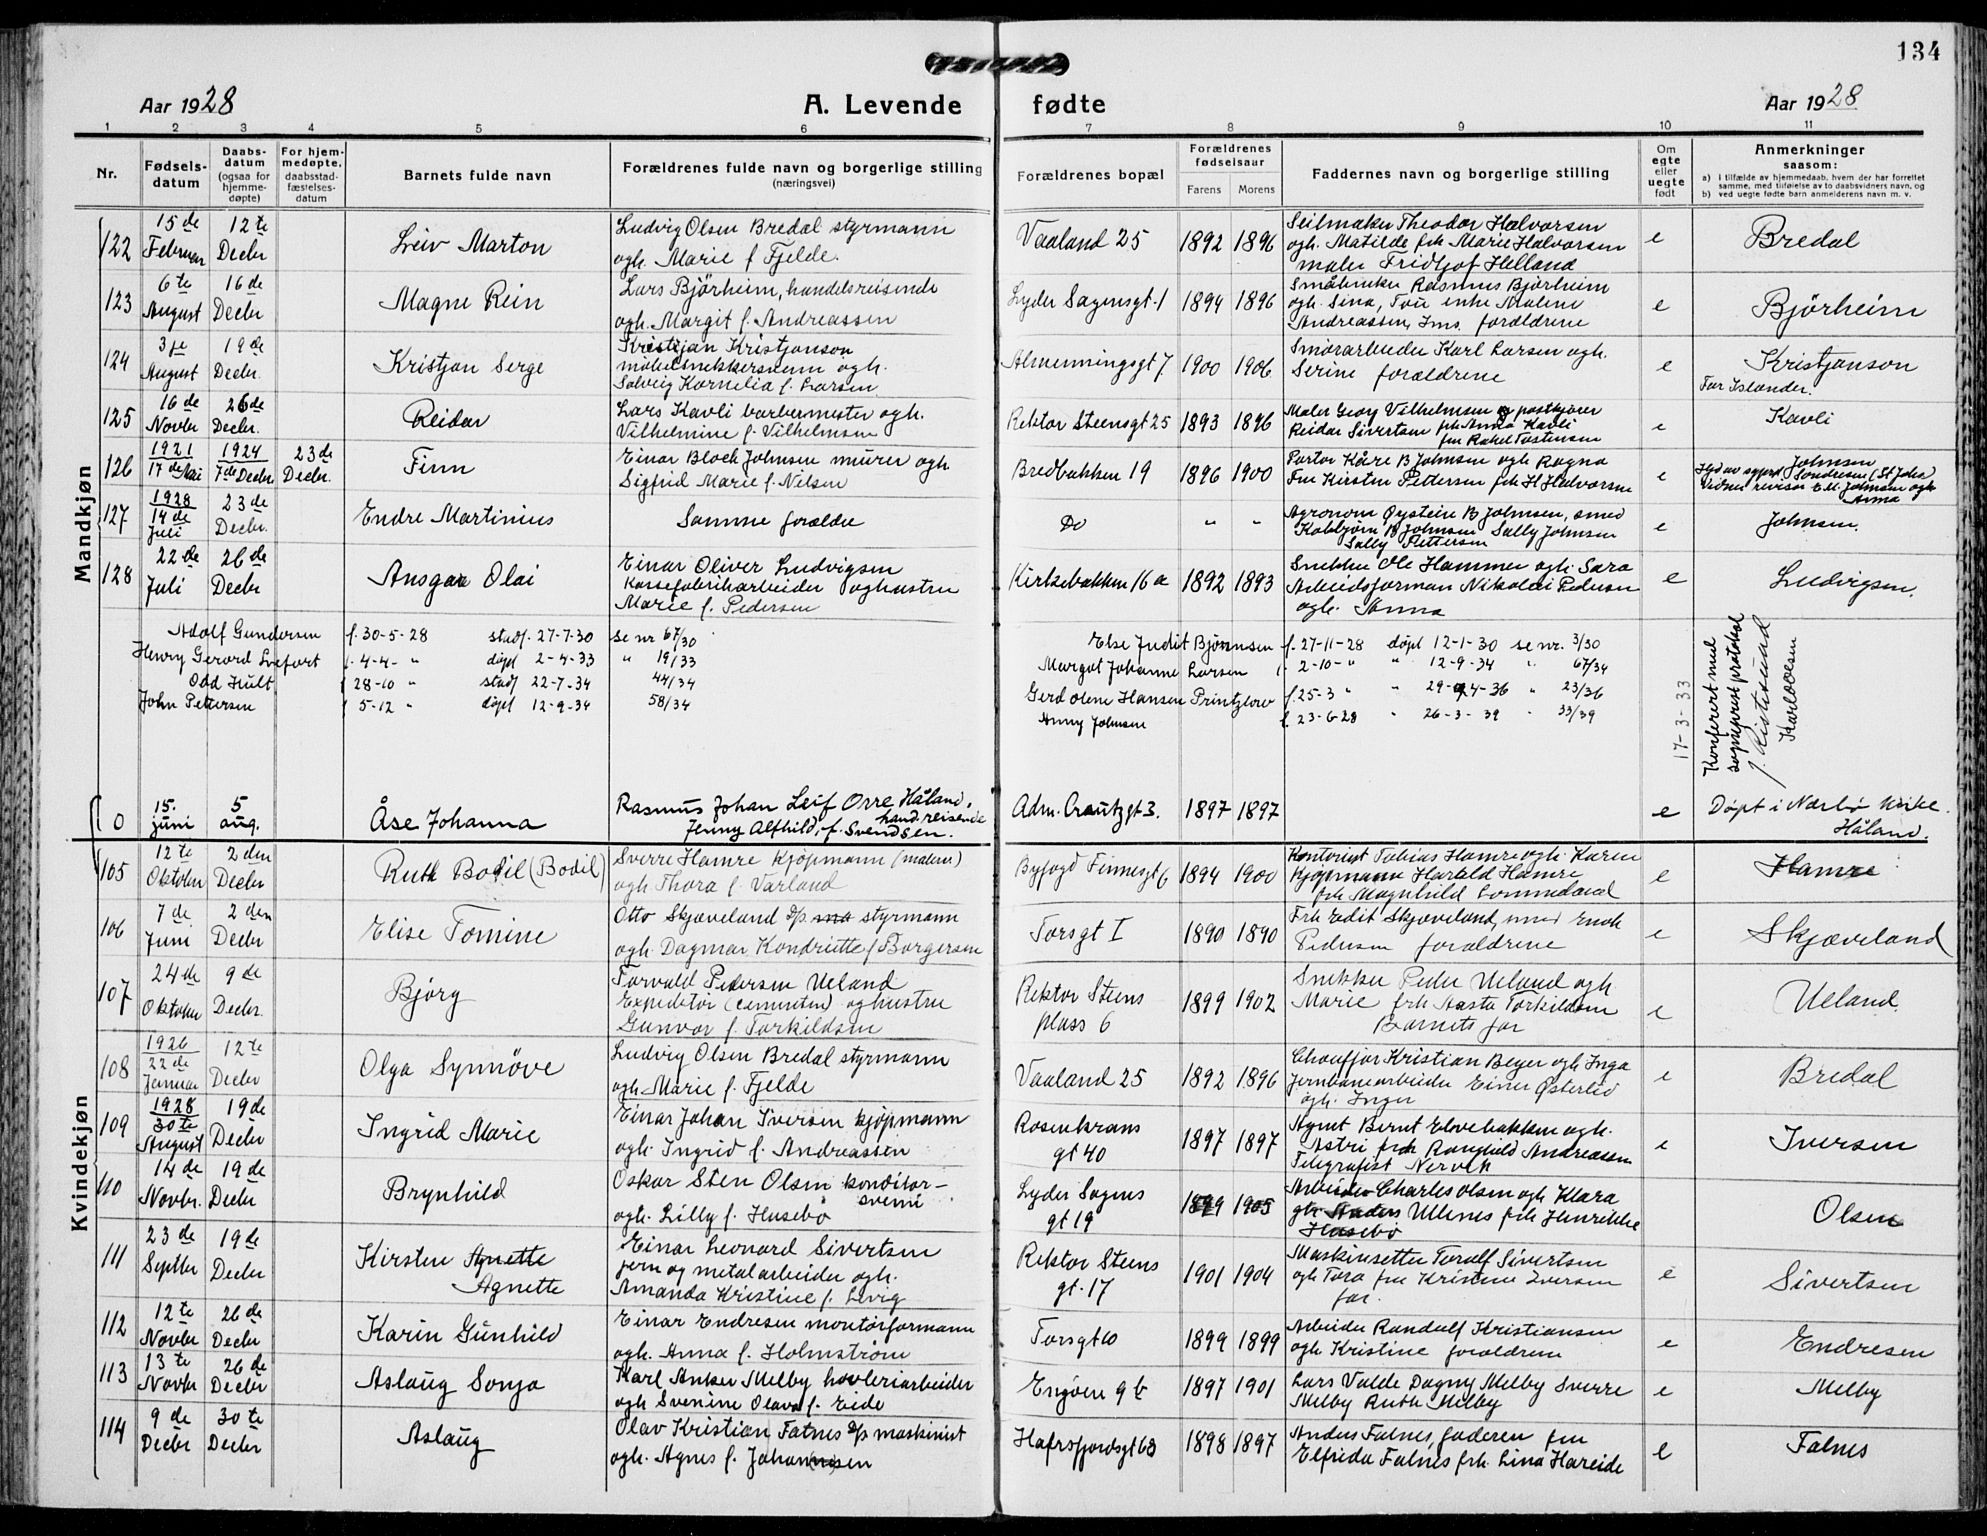 134
Aar 1928 A. Levende fødte Aar 1928
1 2 3 4 5 6 7 8 9 10 11
Nr. Fødselsdatum Daabsdatum (ogsaa for hjemmedøpte) For hjemmedøpte, daabsstadfæstelsesdatum Barnets fulde navn Forældrenes fulde navn og borgerlige stilling (næringsvei) Forældrenes bopæl Forældrenes fødselsaar Farens Morens Faddernes navn og borgerlige stilling Om egte eller uegte født Anmerkninger saasom:
a) I tilfælde av hjemmedaab, hvem der har forrettet samme, med tilføielse av to daabsvidners navn, og
b) ved uegte fødte barn anmelderens navn m. v.
Mandkjøn
122 15de Februar 12te Decbr Leiv Marton Ludvig Olsen Bredal styrmann Vaaland 25 1892 1896 Seilmaker Theodor Halvorsen e Bredal
ogh. Marie f Fjelde. ogh. Matilde frk Marie Halvorsen
maler Fridtjof Helland
123 6te August 16de Decbr Magne Rein Lars Bjørheim, handelsreisende Lyder Sagensgt. 1 1894 1896 Småbruker Rasmus Bjørheim e Bjørheim
ogh. Margit f. Andreassen ogh. Sina, Tou enke Malene
Andreassen, Ims. forældrene
124 31te August 19de Decbr. Kristjan Serge Kristjan Kristjanson Almenningsgt 7 1900 1906 Smørarbeider Karl Larsen ogh. e Kristjanson
møbelsnekkersvenn ogh. Serine forældrene Far Islænder.
Solveig Kornelia f. Larsen
125 16de Novbr 26de Decbr. Reidar Lars Kavli barbermester ogh. Rektor Steensgt 25 1893 1896 Maler Georg Vilhelmsen og postkjører e Kavli
Vilhelmine f. Vilhelmsen Reidar Sivertsen frk Anna Kavli
frk Rakel Tostensen
126 1921 17de Mai 1924 7de Decbr 23de Decbr. Finn Einar Bloch Johnsen murer ogh Bredbakken 19 1896 1900 Pastor Kåre B Johnsen ogh Ragna e Johnsen
Sigfrid Marie f. Nilsen Fru Kirsten Pettersen frk H Halvorsen
Vidner revisor E.M. Johnsen ogh Anna
127 1928 14de Juli 23de Decbr. Endre Martinius Samme forældre Do " " Agronom Øystein B Johnsen, smed e Johnsen.
Kolbjørn B Johnsen Sally Johnsen
Sally Pettersen
128 22de Juli 26de Decbr Ansgar Olai Einar Oliver Ludvigsen Kirkebakken 16a 1892 1893 Snekker Ole Hammer ogh. Sara e Ludvigsen.
Kassefabrikarbeider og hustru Arbeidsformann Nikolai Pedersen
Marie f. Pedersen ogh. Anna
Adolf Gundersen f. 30-5-28 stadf. 27-7-30 se nr 67/30
Henry Gerard Svefort f. 4-4- " døpt 2-4-33 " 19/33
Odd Hult f 28-10 " stadf 22-7-34 44/34
John Pettersen f 5-12 " døpt 12-9-34 58/34
Else Judit Bjørnsen f. 27-11-28 døpt 12-1-30 se nr. 3/30
Margot Johanne Larsen f. 2-10- " " 12-9-34 " 67/34
Gerd Olene Hansen Printzlow f. 25-3 " " 29-4-36 " 23/36
Anny Johnsen f. 23-6-28 " 26-3-39 " 33/39
17-3-33
Konferert med
sogneprest protokol
0 15. juni 5 aug. Åse Johanna Rasmus Johan Leif Orre Håland, hand.reisende Adm. Crautzgt 3. 1897 1897 e Døpt i Nærbø kirke.
Jenny Alfhild, f. Svendsen. Håland.
Kvindekjøn
105 12te Oktober 2den Decbr Ruth Bodil (Bodil) Sverre Hamre kjøpmann (materi) Byfogd Finnesgt 6 1894 1900 Kontorist Tobias Hamre ogh. Karen e Hamre
ogh Thora f. Varland kjøpmann Harald Hamre
frk Magnhild Sommedaal
106 7de Juni 2den Decbr Elise Tomine Otto Skjæveland d/s styrmann Torsgt I 1890 1890 Frk Edit Skjæveland, smed Enok e Skjæveland
ogh. Dagmar Kondriutte f Borgersen Pedersen forældrene
107 24de Oktober 9de Decbr Bjørg Torvald Pedersen Ueland Rektor Steens plass 6 1899 1902 Snekker Peder Ueland ogh e Ueland
Expeditør (cementen) og hustru Marie frk Aasta Torkildsen
Gunvor f. Torkildsen Barnets far
108 1926 22de Januar 12te Decbr Olga Synnöve Ludvig Olsen Bredal styrmann Vaaland 25 1892 1896 Chauffør Kristian Beyer ogh Inga e Bredal
ogh. Marie f. Fjelde Jernbanearbeider Einer Østerlid
ogh. Inger
109 1928 30te August 19de Decbr Ingrid Marie Einar Johan Iversen kjøpmann Rosenkrans gt 40 1897 1897 Agent Bernt Elvebakken ogh. e Iversen
ogh. Ingrid f. Andreassen Astri frk Ragnhild Andreassen
Telegrafist Nervik
110 14de Novbr. 19de Decbr Brynhild Oskar Sten Olsen konditorsvenn Lyder Sagens gt 19 1899 1905 Arbeider Charles Olsen ogh Klara Olsen
ogh. Lilly f. Husebö gtr Anders Ullenes frk Henrikke
Husebö
111 23de Septbr 19de Decbr Kirsten Agnette Agnette Einar Leonard Sivertsen Rektor Steens gt. 17 1901 1904 Maskinsetter Toralf Sivertsen e Sivertsen
jern og metalarbeider ogh. ogh Tora frk Kristine Iversen
Amanda Kristine f. Levig far.
112 12te Novbr 26de Decbr Karin Gunhild Einar Endresen montörformann Torsgt 10 1899 1899 Arbeider Randulf Kristiansen e Endresen
ogh. Anna f. Holmström ogh Kristine forældrene
113 13te Novbr 26de Decbr Aslaug Sonja Karl Anker Melby høvleriarbeider Engøen 9b 1897 1901 Lars Valde Dagny Melby Sverre e Melby
ogh Svenine Olava f. Eide Melby Ruth Melby
114 9de Decbr 30te Decbr Aslaug Olav Kristian Fatnes d/s maskinist Hafrsfjordsgt 63 1898 1897 Anders Fatnes, faderen fru e Fatnes
ogh. Agnes f. Johannesen Elfrida Fatnes frk. Lina Hareide